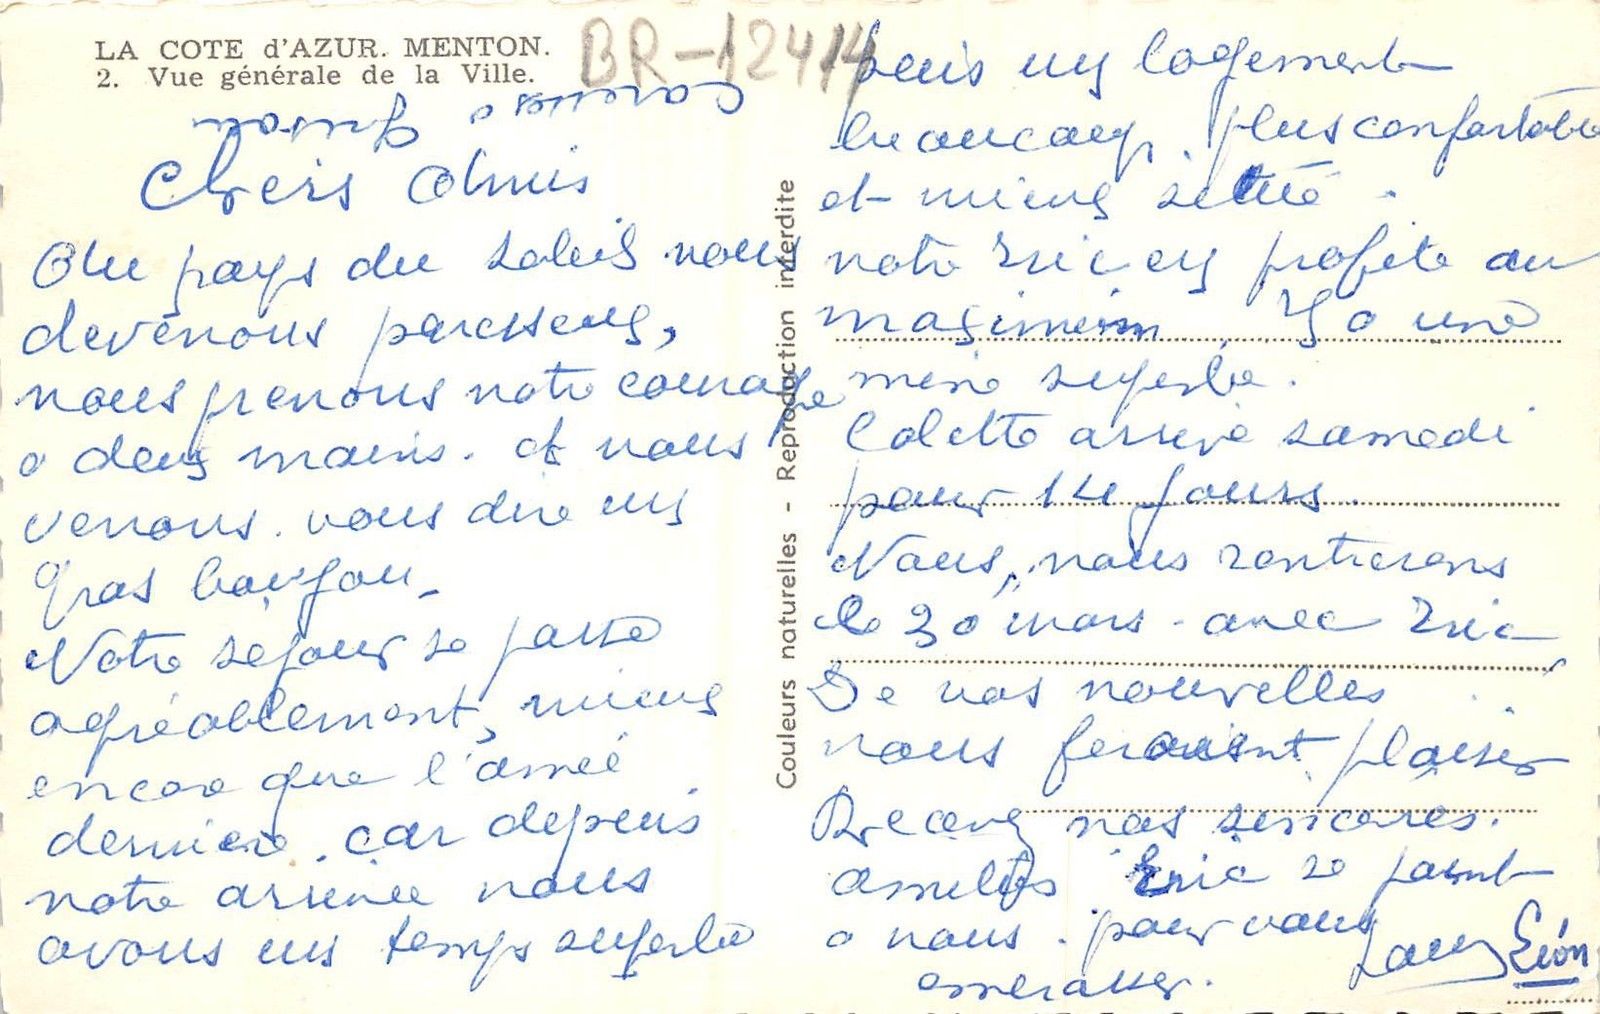 LA COTE d'AZUR. MENTON.
2. Vue générale de la Ville.
BR-12414
Chers Amis
Au pays du soleil nous
devenous paresseux,
nous prenons notre courage
a deux mains. et nous
venons. vous dire un
Gros bonjour.
Notre séjour se passe
agréablement, mieux
encore que l'année
dernière. car depuis
notre arrivée nous
avons un temps superbe
Couleurs naturelles - Reproduction interdite
puis un logement
beaucoup. plus confortable
et mieux situé.
notre Eric en profite au
maximum Il a une
mine superbe.
Colette arrive samedi
pour 14 jours.
Nous, nous rentrerons
le 30 mars. avec Eric
De vos nouvelles
nous feraient plaisir
Recevez nos sincères.
amitiés Eric se joint
a nous. pour vous
embrasser.
Léon